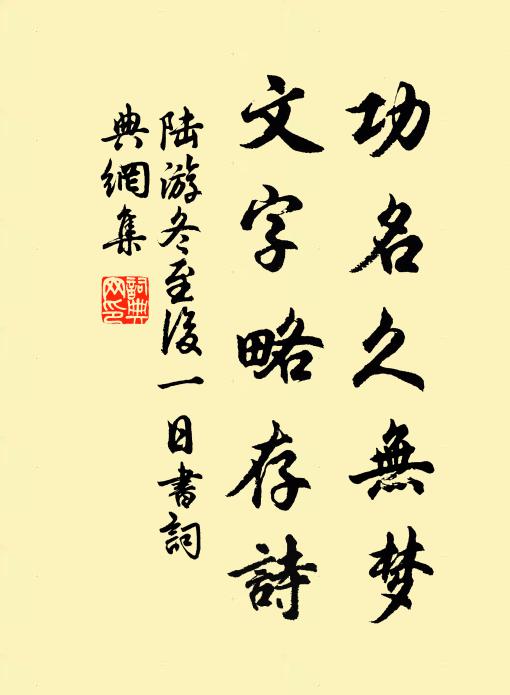 功名久無梦
文字略存詩
陆游冬至後一日書詞
典網集
詞典网印